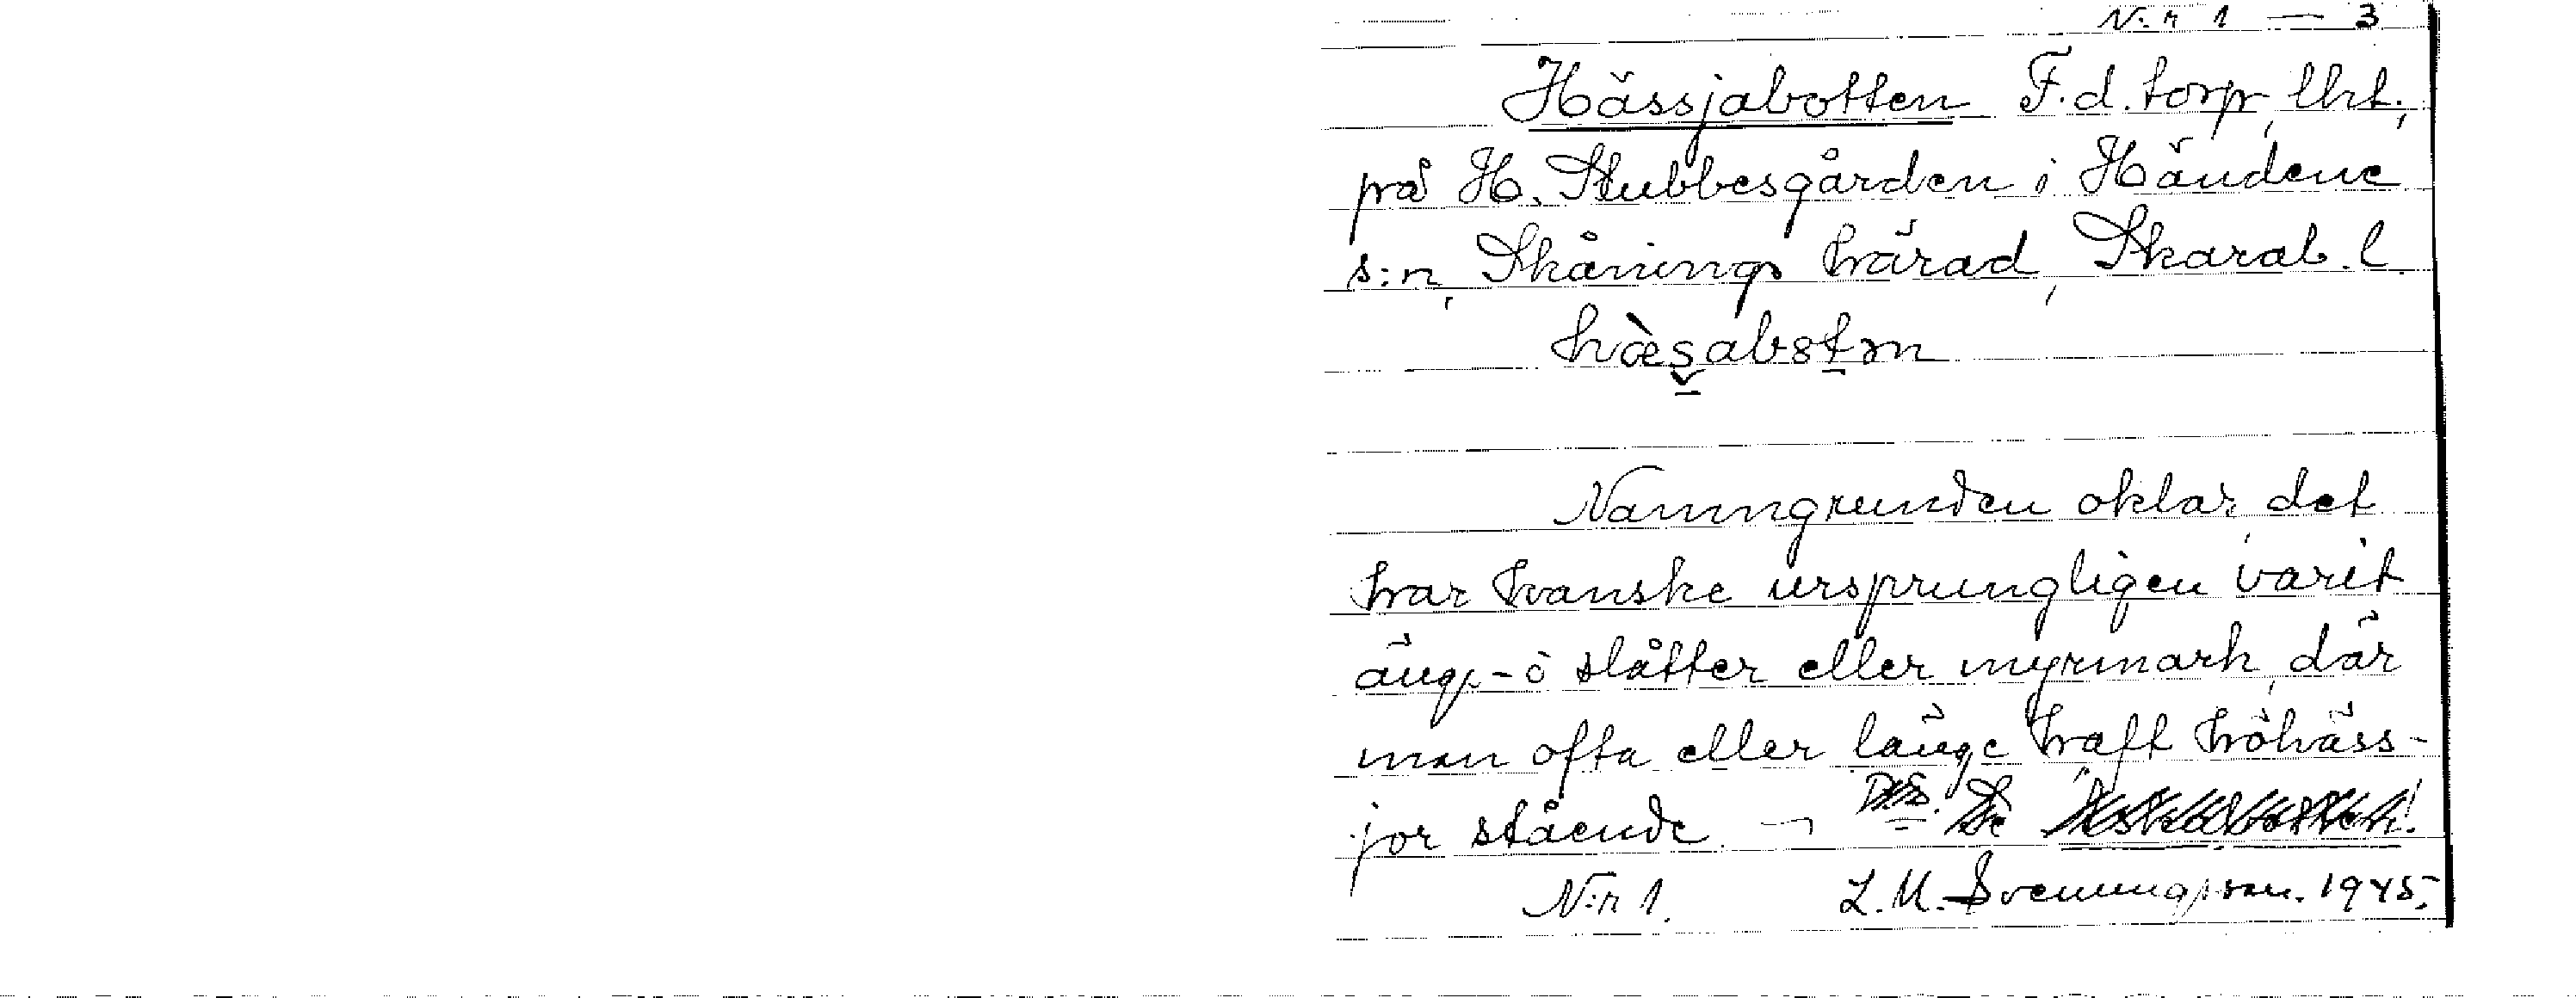 N:r 1 — 3
Hässjabotten F.d. torp, lht.,
på H. Stubbesgården i Händene
s:n, Skånings härad, Skarab. l.
Namngrunden oklar, det
har kanske ursprungligen varit
ängs-ö slåtter eller myrmark, där
man ofta eller länge haft höhäss-
jor stående. Se
N:r 1. L.M. Svenungsson. 1945.